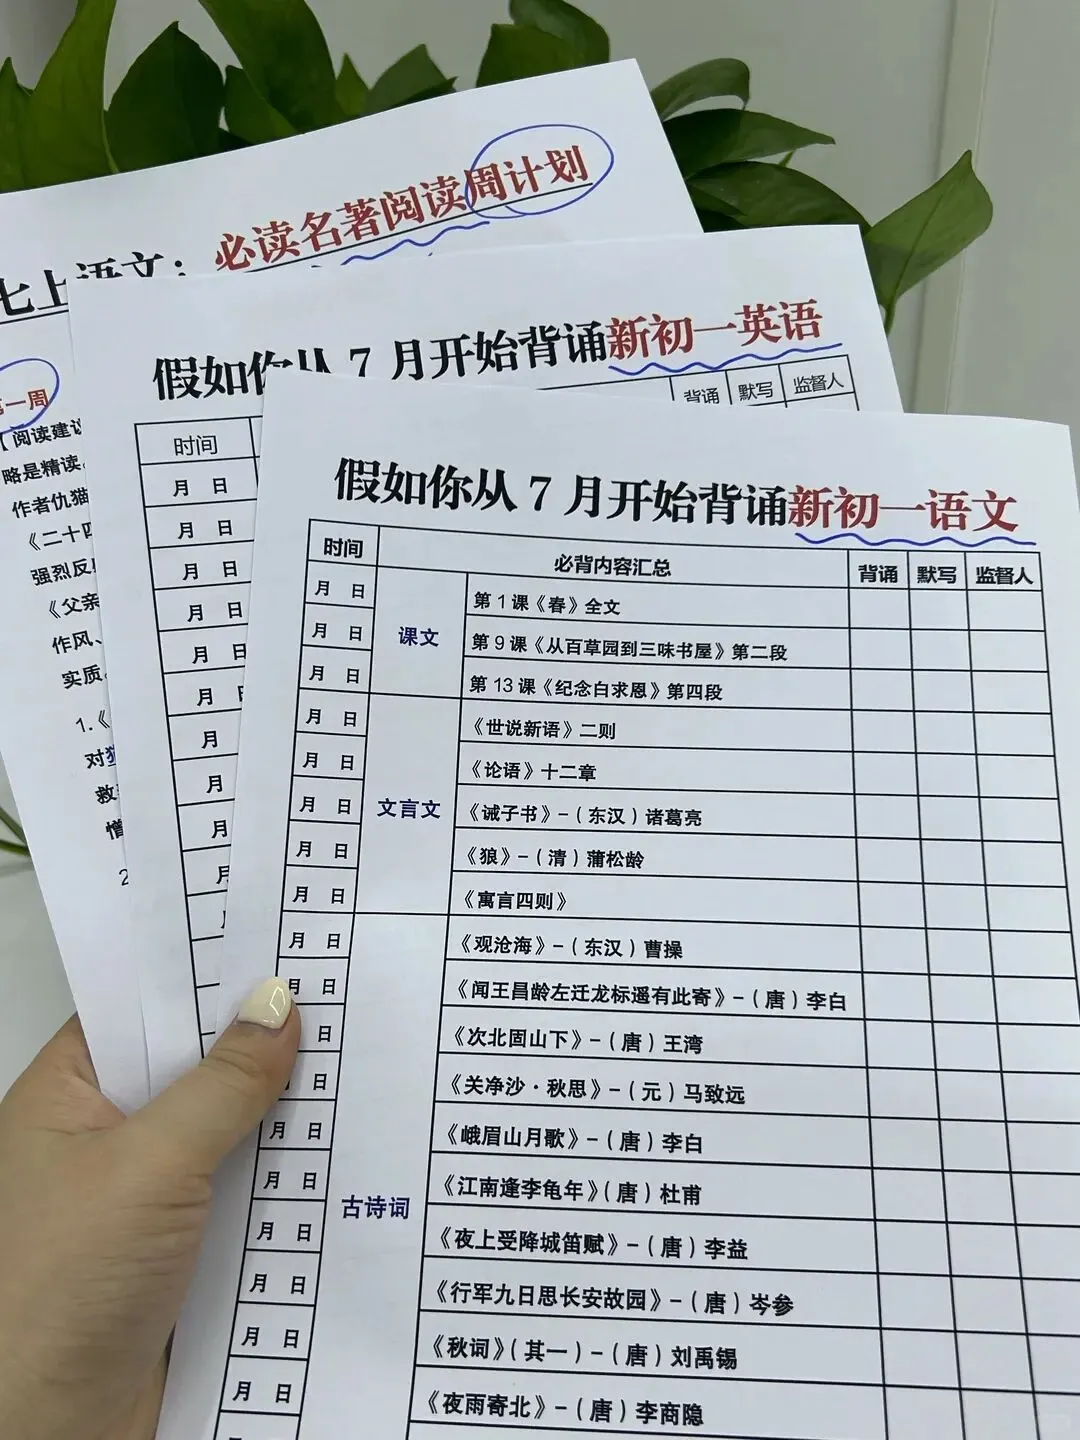 七上语文：必读名著阅读周计划
第一周
【阅读建议
略是精读。
作者仇猫
《二十四
强烈反
《父亲
作风、
实质。
1.《
对
救
憎
2
假如你从 7 月开始背诵新初一英语
时间 背诵 默写 监督人
月 日
月 日
月 日
月 日
月 日
月
月
月
月
月
假如你从 7 月开始背诵新初一语文
时间 必背内容汇总 背诵 默写 监督人
月 日 课文 第 1 课《春》全文
月 日 第 9 课《从百草园到三味书屋》第二段
月 日 第 13 课《纪念白求恩》第四段
月 日 文言文 《世说新语》二则
月 日 《论语》十二章
月 日 《诫子书》–（东汉）诸葛亮
月 日 《狼》–（清）蒲松龄
月 日 《寓言四则》
月 日 古诗词 《观沧海》–（东汉）曹操
月 日 《闻王昌龄左迁龙标遥有此寄》–（唐）李白
日 《次北固山下》–（唐）王湾
日 《关净沙·秋思》–（元）马致远
月 日 《峨眉山月歌》–（唐）李白
月 日 《江南逢李龟年》（唐）杜甫
月 日 《夜上受降城笛赋》–（唐）李益
月 日 《行军九日思长安故园》–（唐）岑参
月 日 《秋词》（其一）–（唐）刘禹锡
月 日 《夜雨寄北》–（唐）李商隐